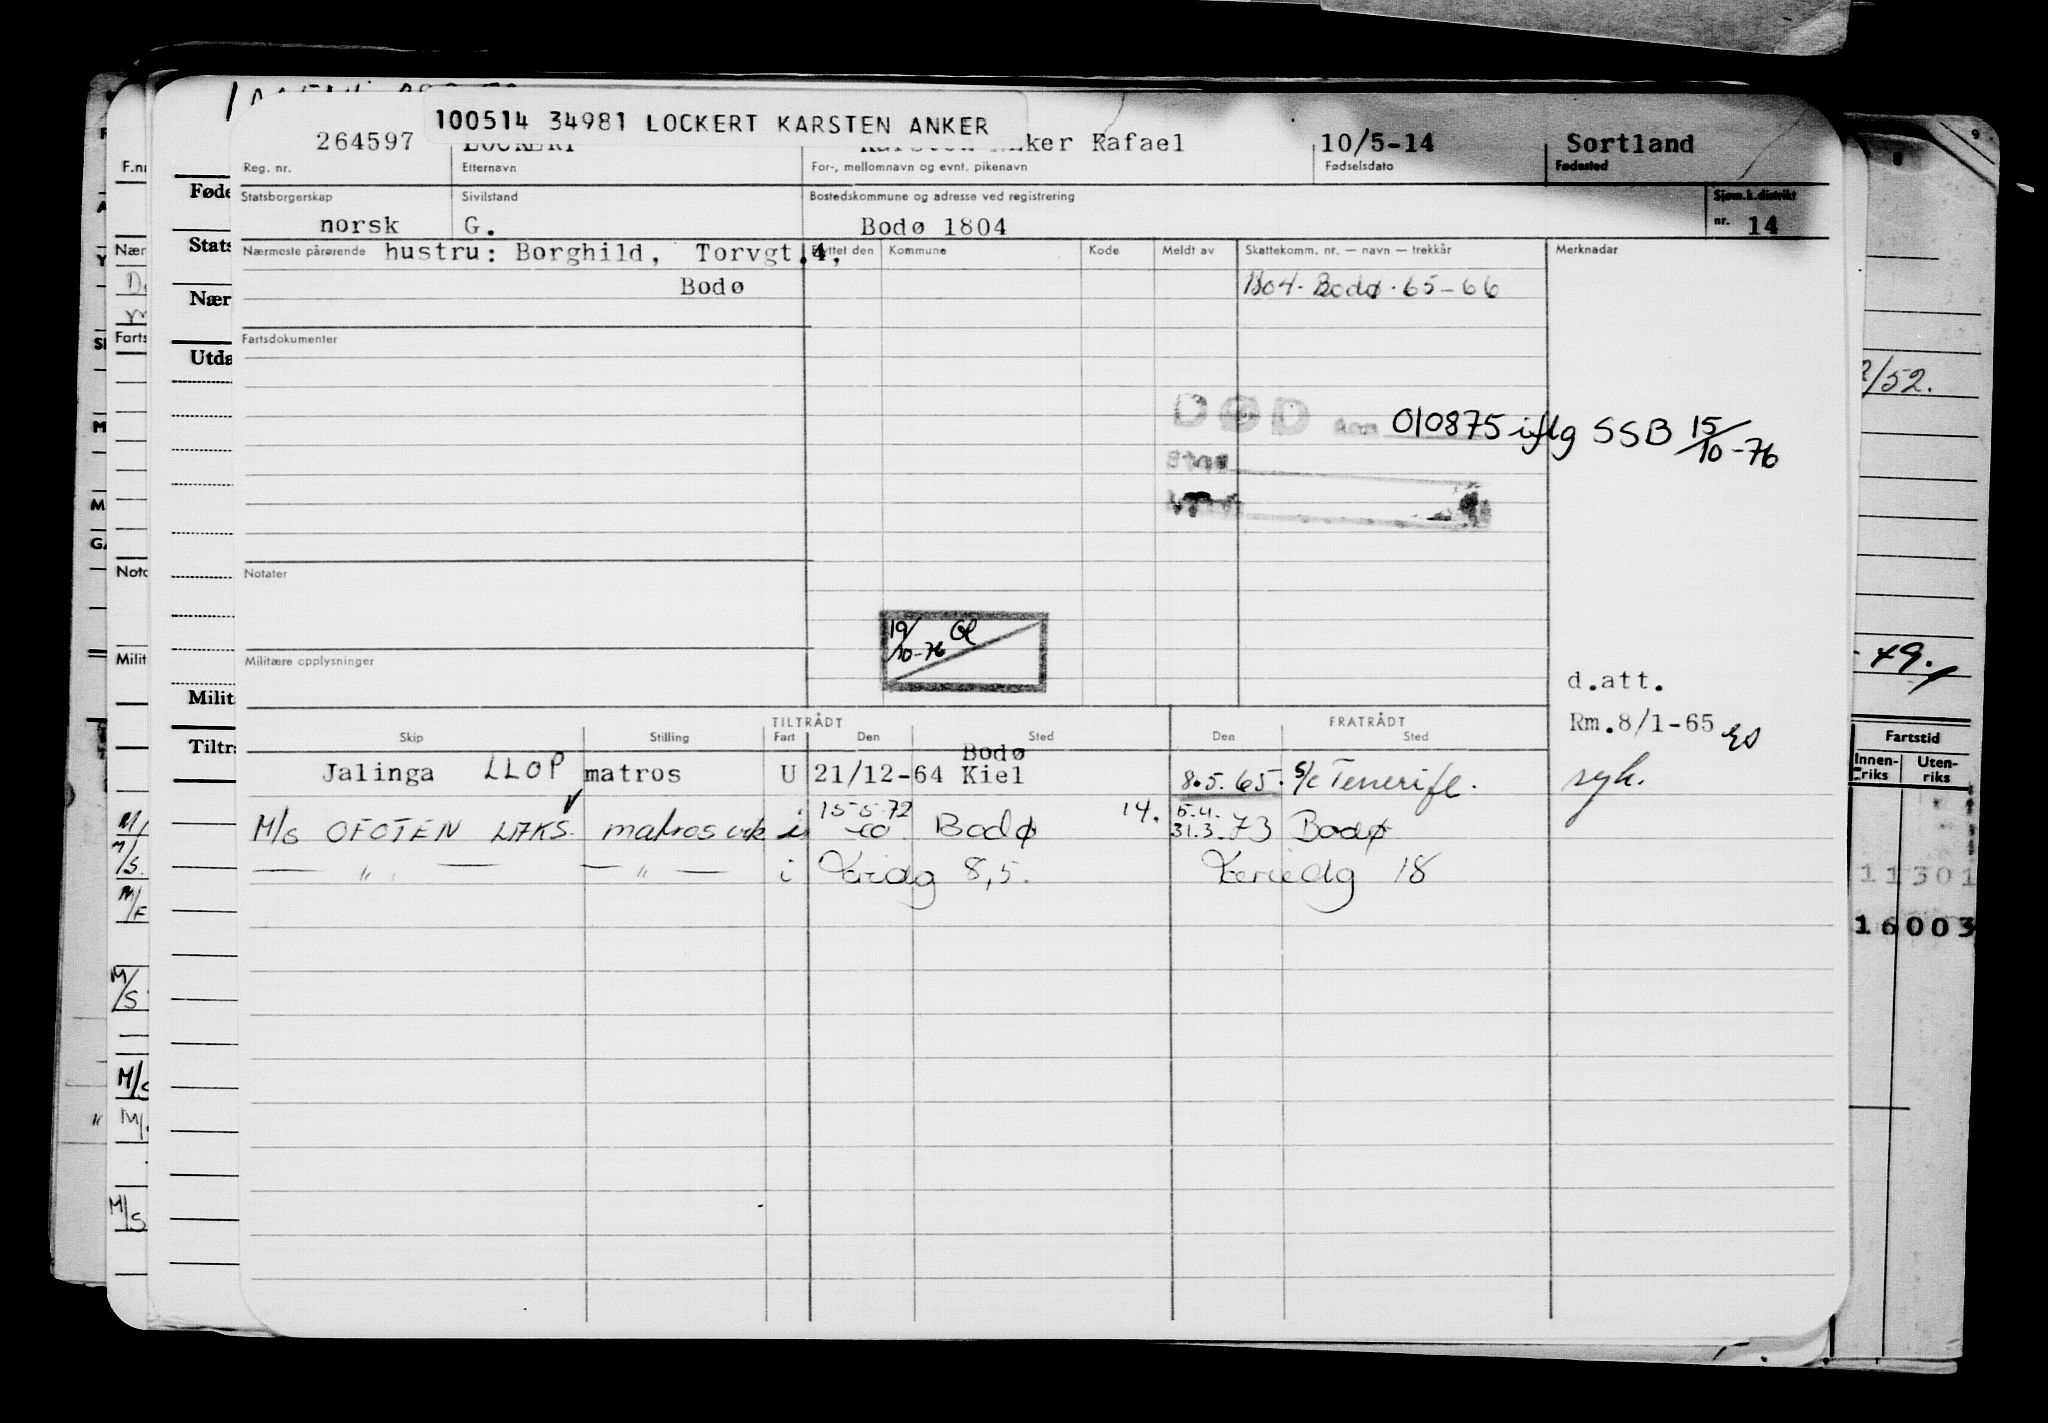 100514 34981 LOCKERT KARSTEN ANKER
264597 LOCKERT Karsten Anker Rafael 10/5-14 Sortland
Reg. nr. Etternavn For-, mellomnavn og evnt. pikenavn Fødselsdato Fødested
Statsborgerskap Sivilstand Bostedskommune og adresse ved registrering Sjøm.k.distrikt
norsk G. Bodø 1804 nr. 14
Nærmeste pårørende hustru: Borghild, Torvgt.4, Flyttet den Kommune Kode Meldt av Skattekomm. nr. — navn — trekkår Merknadar
Bodø 1804. Bodø. 65-66
Fartsdokumenter
DØD 010875 iflg SSB 15/10-76
Notater
19/10-76
Militære opplysninger
d.att.
Rm.8/1-65
TILTRÅDT FRATRÅDT
Skip Stilling Fart Den Sted Den Sted
Bodø
Jalinga LLOP matros U 21/12-64 Kiel 8.5.65. S/C Tenerife. syk.
15-5-72 14. 5.4.
M/S OFOTEN LAKS matros i Bodø 31.3.73 Bodø
— " — — " — i 8,5. 18
F.n
Føde
Stats
Nær
Nær
Farts
Utda
Noto
Milit
Milit
Tiltr
M/S
M/S
M/S
M/S
2/52.
49.
Fartstid
Innen-riks Uten-riks
11301
16003
9